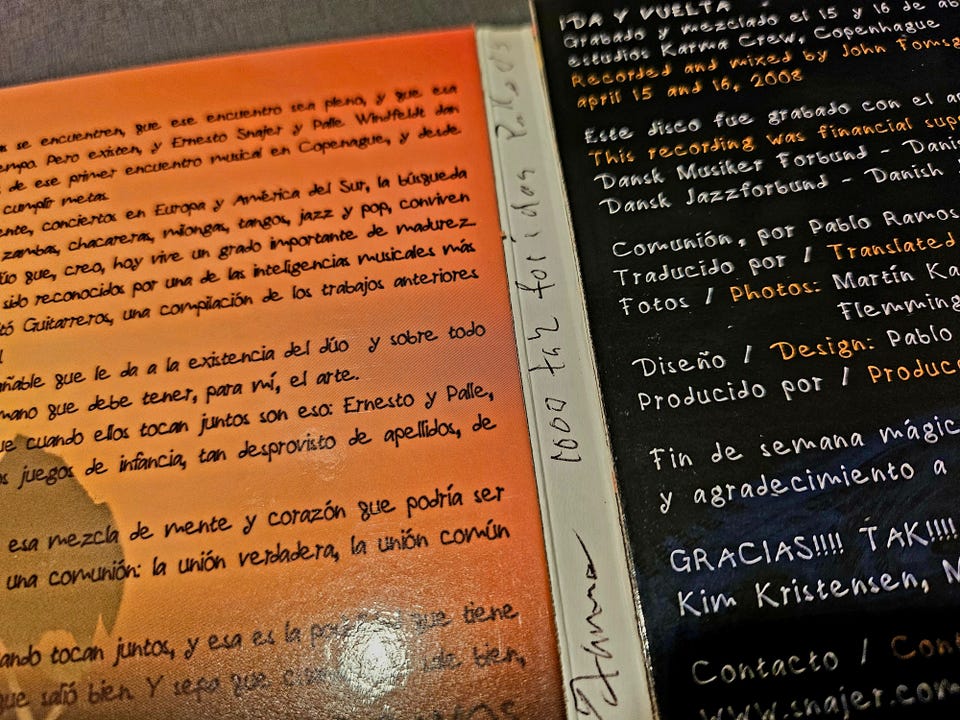 se encuentren, que ese encuentro sea pleno, y que esa
empo. Pero existen, y Ernesto Snajer y Palle Windfeldt dan
de ese primer encuentro musical en Copenague, y desde
cumplir metas.
ente, conciertos en Europa y América del Sur, la búsqueda
zambas, chacareras, milongas, tangos, jazz y pop, conviven
úo que, creo, hoy vive un grado importante de madurez.
sido reconocidos por una de las inteligencias musicales más
tó Guitarreros, una compilación de los trabajos anteriores
añable que le da a la existencia del dúo y sobre todo
mano que debe tener, para mí, el arte.
ue cuando ellos tocan juntos son eso: Ernesto y Palle,
os juegos de infancia, tan desprovisto de apellidos, de
esa mezcla de mente y corazón que podría ser
una comunión: la unión verdadera, la unión común
ando tocan juntos, y esa es la que tiene
que salió bien. Y sepa que bien,
1000 tak for
IDA Y VUELTA
Grabado y mezclado el 15 y 16 de ab
estudios Karma Crew, Copenhague
Recorded and mixed by John Fomsg
april 15 and 16, 2008
Este disco fue grabado con el a
This recording was financial sup
Dansk Musiker Forbund - Danis
Dansk Jazzforbund - Danish
Comunión, por Pablo Ramos
Traducido por / Translated
Fotos / Photos: Martín Ka
Flemming
Diseño / Design: Pablo
Producido por / Produc
Fin de semana mágic
y agradecimiento a
GRACIAS!!!! TAK!!!!
Kim Kristensen, M
Contacto / Cont
www.snajer.com